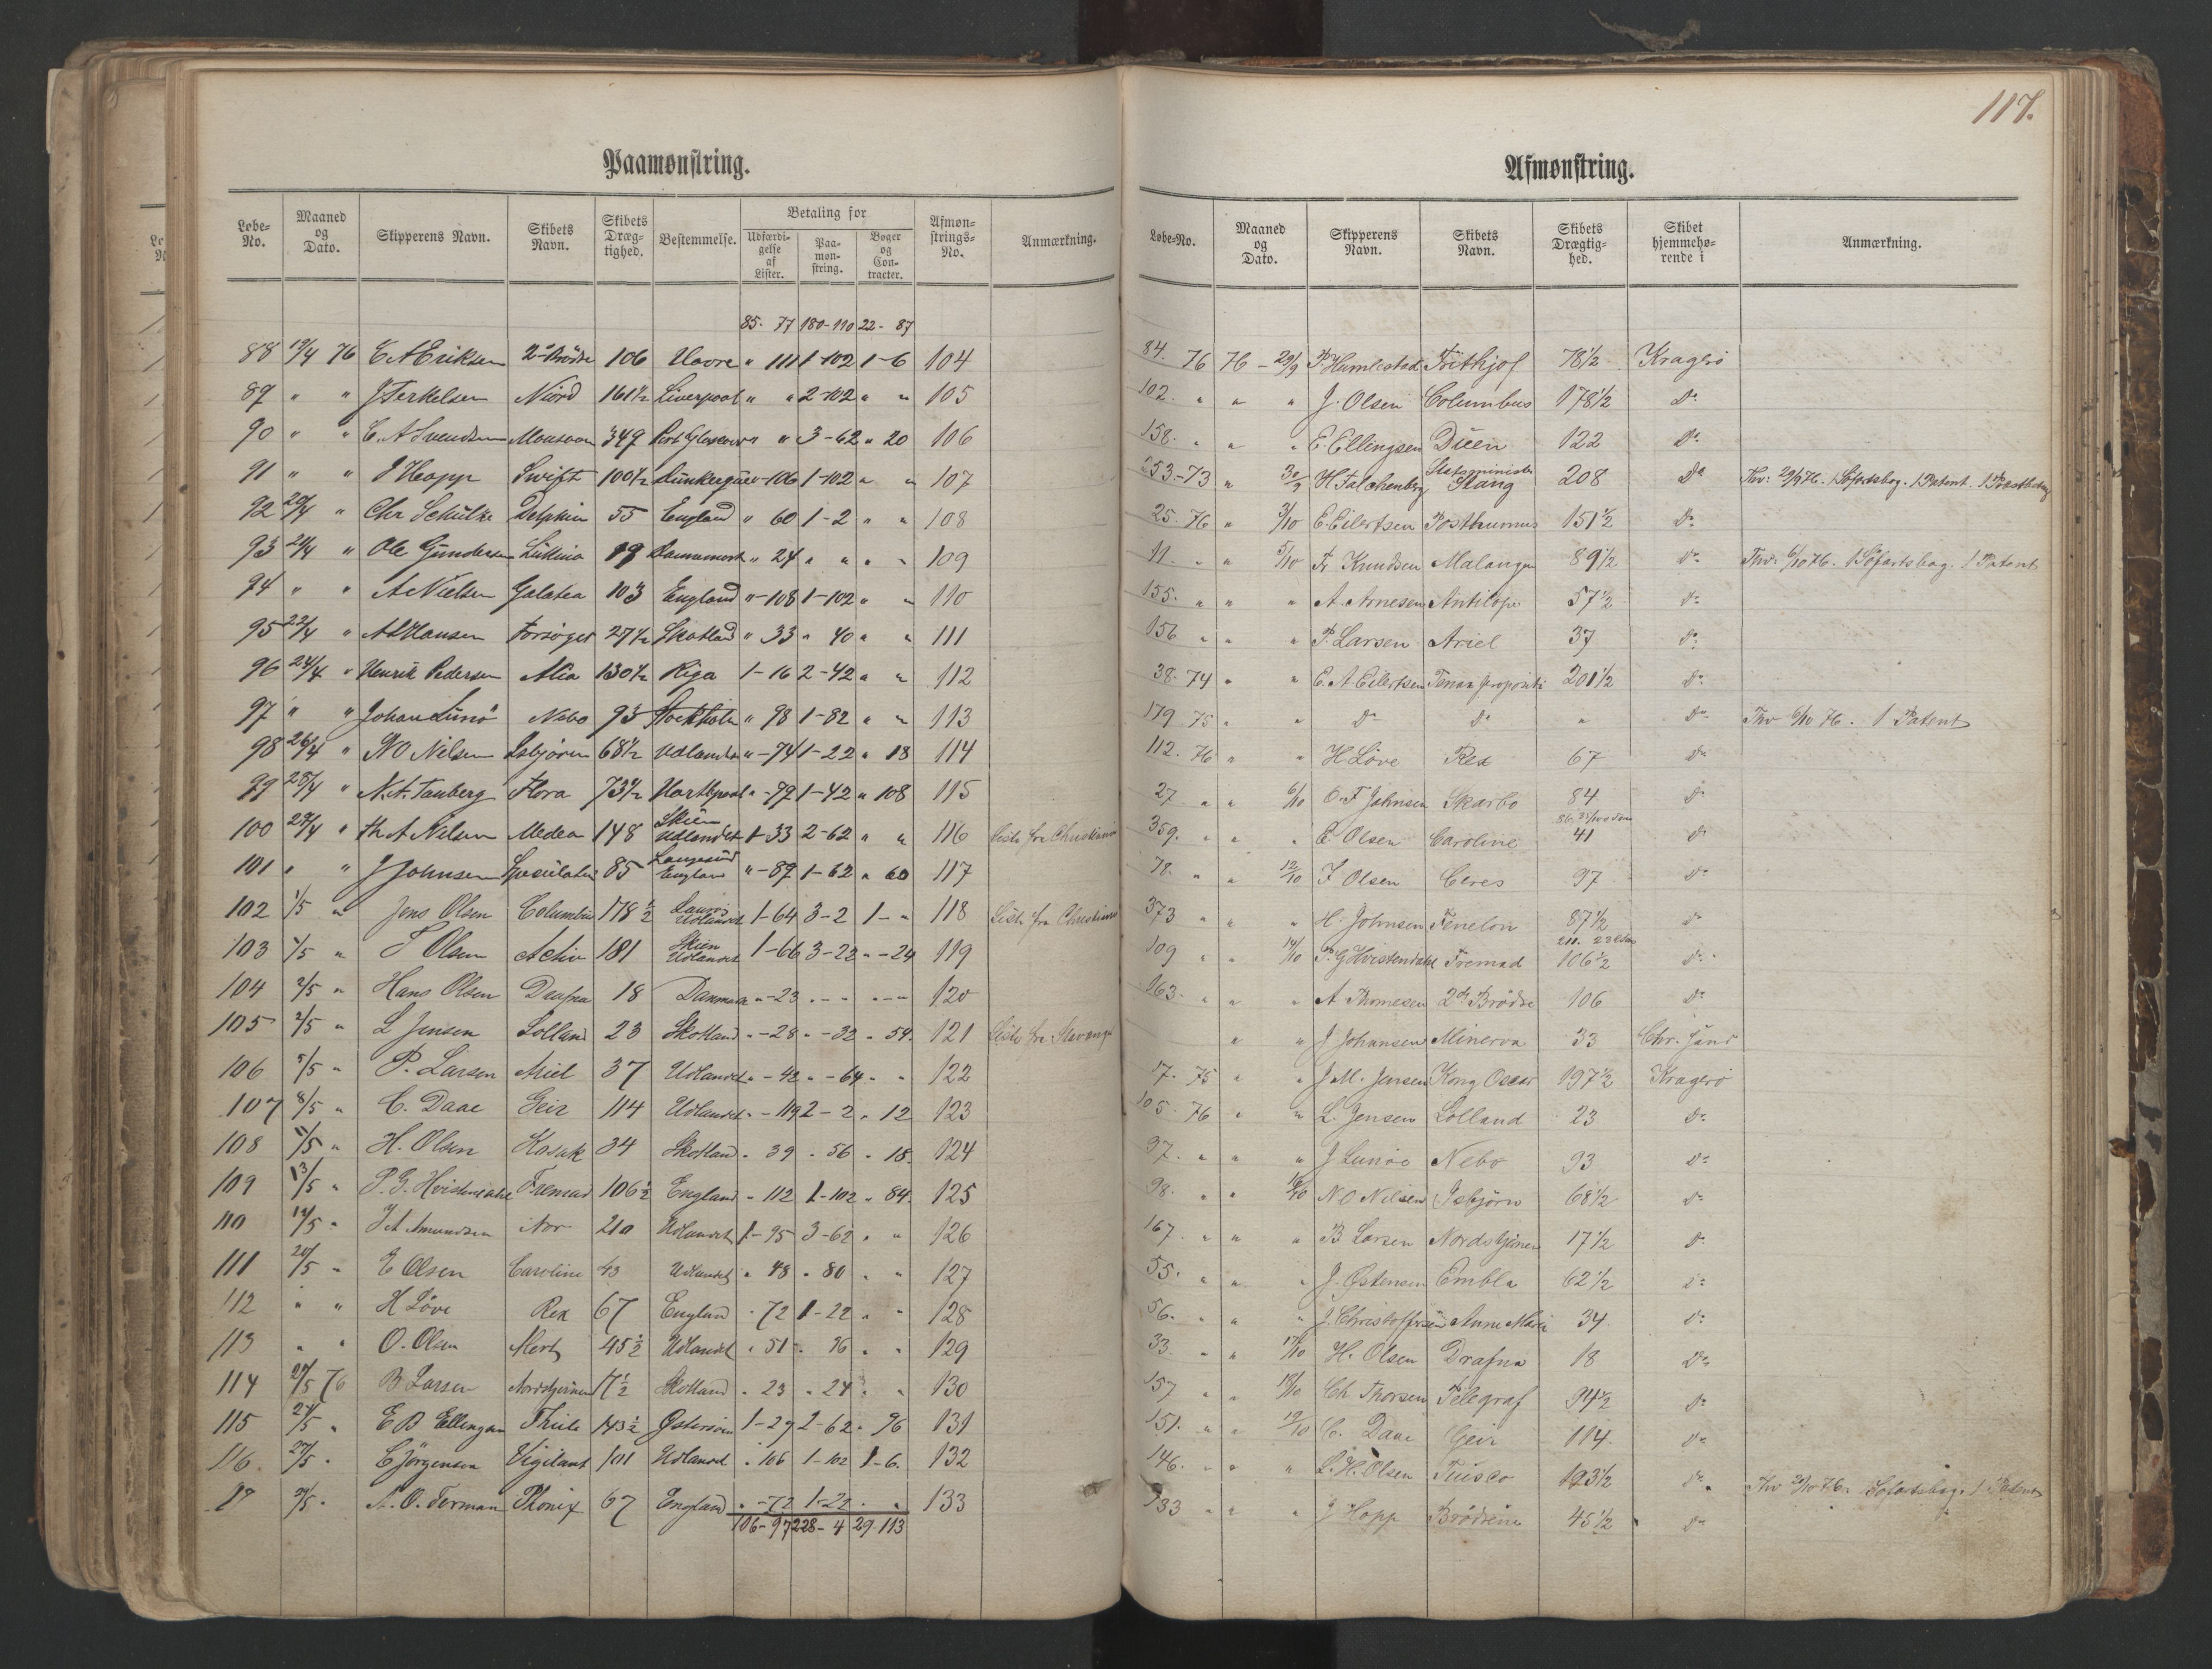 117.
Paamønstring.
Løbe-No. Maaned og Dato. Skipperens Navn. Skibets Navn. Skibets Dræg-tighed. Bestemmelse. Betaling for Udfærdi-gelse af Lister. Paa-møn-string. Bøger og Con-tracter. Afmøn-strings-No. Anmærkning.
85 - 77 180 - 110 22 - 87
88 19/4 76 E A Eriksen 2de Brødre 106 Havre " 111 1-102 1-6 104
89 " " J Terkelsen Niord 161½ Liverpool " " 2-102 " " 105
90 " " C. A Svendsen Monsoon 349 Port Glascow " " 3-62 " 20 106
91 " " J Hopp Swift 100½ Dunkerque "-106 1-102 " " 107
92 20/4 " Chr Schulze Delphin 55 England " 60 1-2 " " 108
93 21/4 " Ole Gundersen 19 Dannemark " 24 " " " " 109
94 " " A Nielsen Galatea 103 England "-108 1-102 " " 110
95 22/4 " A Hansen Forsøget 27½ Skotland " 33 " 40 " " 111
96 24/4 " Henrik Pedersen 130½ Riga 1-16 2-42 " " 112
97 " " Johan Lunö Nebo 93 Stockholm " 98 1-82 " " 113
98 26/4 " N O Nilsen Isbjören 68½ Udlandet "-74 1-22 " 18 114
99 28/4 " N. A. Tauberg Flora 73½ Hartlepool "-79 1-42 " 108 115
100 29/4 " Th A Nilsen Medea 148 Skien Udlandet 1-33 2-62 " " 116 Liste fra Christiania
101 " " J Johnsen Speculation 85 Langesund England "-89 1-62 " 60 117
102 1/5 " Jens Olsen Columbus 178½ Udlandet 1-64 3-2 1-" 118 Liste fra Christiania
103 1/5 " Olsen Activ 181 Skien Udlandet 1-66 3-22 "-24 119
104 2/5 " Hans Olsen Drafna 18 Danmark "-23 "-" "-" 120
105 2/5 " L Jensen Lolland 23 Skotland "-28 "-32 " 54. 121 Liste fra Stavanger
106 5/5 " P. Larsen Ariel 37 Udlandet "-42 "-64 " " 122
107 8/5 " C. Daae Geir 114 Udlandet "-119 2-2 " 12 123
108 11/5 " H. Olsen Kosak 34 Skotland " 39 " 56 " 18. 124
109 13/5 " P. G. Hvistendahl Fremad 106½ England " 112 1-102 " 84. 125
110 /5 " J A Amundsen Nor 210 Udlandet 1-95 3-62 " " 126
111 20/5 " E Olsen Caroline 43 Udlandet " 48 " 80 " " 127
112 " " H Löve Rex 67 England " 72 1-22 " " 128
113 " " O. Olsen 45½ Udlandet " 51 " 76 " " 129
114 27/5 76 B Larsen Nordstjernen 17½ Skotland " 23 " 24 " " 130
115 27/5 " E B Ellingsen Thule 143½ Østersøen 1-29 2-62 " 96 131
116. 27/5 " C Jörgensen Vigilant 101 Udlandet " 106 1-102 1-6. 132
17 /5 " A. O. Terman Phönix 67 England "-72 1-22 " " 133
106-97 228-4 29-113
Afmønstring.
Løbe-No. Maaned og Dato. Skipperens Navn. Skibets Navn. Skibets Drægtig-hed. Skibet hjemmehø-rende i Anmærkning.
84. 76 76 - 29/9 P Humlestad Frithjof 78½ Kragerö
102. " " " J. Olsen Columbus 178½ Do
158. " " " E. Ellingsen Duen 122 Do
253-73 " 30/9 H Falchenberg Statsminister Stang 208 Do Thv: 29/9 76. 1 Söfartsbog. 1 Patent.
25. 76 " 3/10 E. Eilertsen Posthumus 151½ Do
11. " " 5/10 Fr Knudsen Malangen 89½ Do Thv: 6/10 76. 1 Söfartsbog. 1 Patent
155. " " " A. Arnesen Antilope 57½ Do
156 " " " P. Larsen Ariel 37 Do
38. 74 " " E. A Eilertsen Tenax Propositi 201½ Do
179 75 " " Do Do " Do Thv 6/10 76. 1 Patent
112. 76 " " H Löve Rex 67 Do
27 " " 6/10 O. F Johnsen Skarbo 84 Do
359. " " " E Olsen Caroline 41 Do
78. " " 12/10 J Olsen Ceres 97 Do
373 " " " H. Johnsen Fenelon 87½ Do
109 " " 14/10 P. G Hvistendahl Fremad 106½ Do
163. " " " A Thomesen 2de Brödre 106 Do
" " J Johansen Minerva 33 Chr. Sand
17. 75 " " J. M. Jensen Kong Oscar 197½ Kragerö
105. 76 " " L. Jensen Lolland 23 Do
97. " " " J Lunöe Nebo 93 Do
98. " " 16/10 N O Nilsen Isbjörn 68½ Do
167 " " " B Larsen Nordstjernen 17½ Do
55. " " " J. Østensen Embla 62½ Do
56. " " " J. Christoffersen Anne Marie 34 Do
33. " " 17/10 H. Olsen Drafna 18 Do
157 " " 18/10 Ch Thorsen Telegraf 94½ Do
151. " " 19/10 C. Daae Geir 114. Do
146. " " " L. H. Olsen Tuisco 193½ Do Thv 20/10 76. Söfartsbog. 1 Patent
133 " " " J Hopp Brödrene 45½ Do